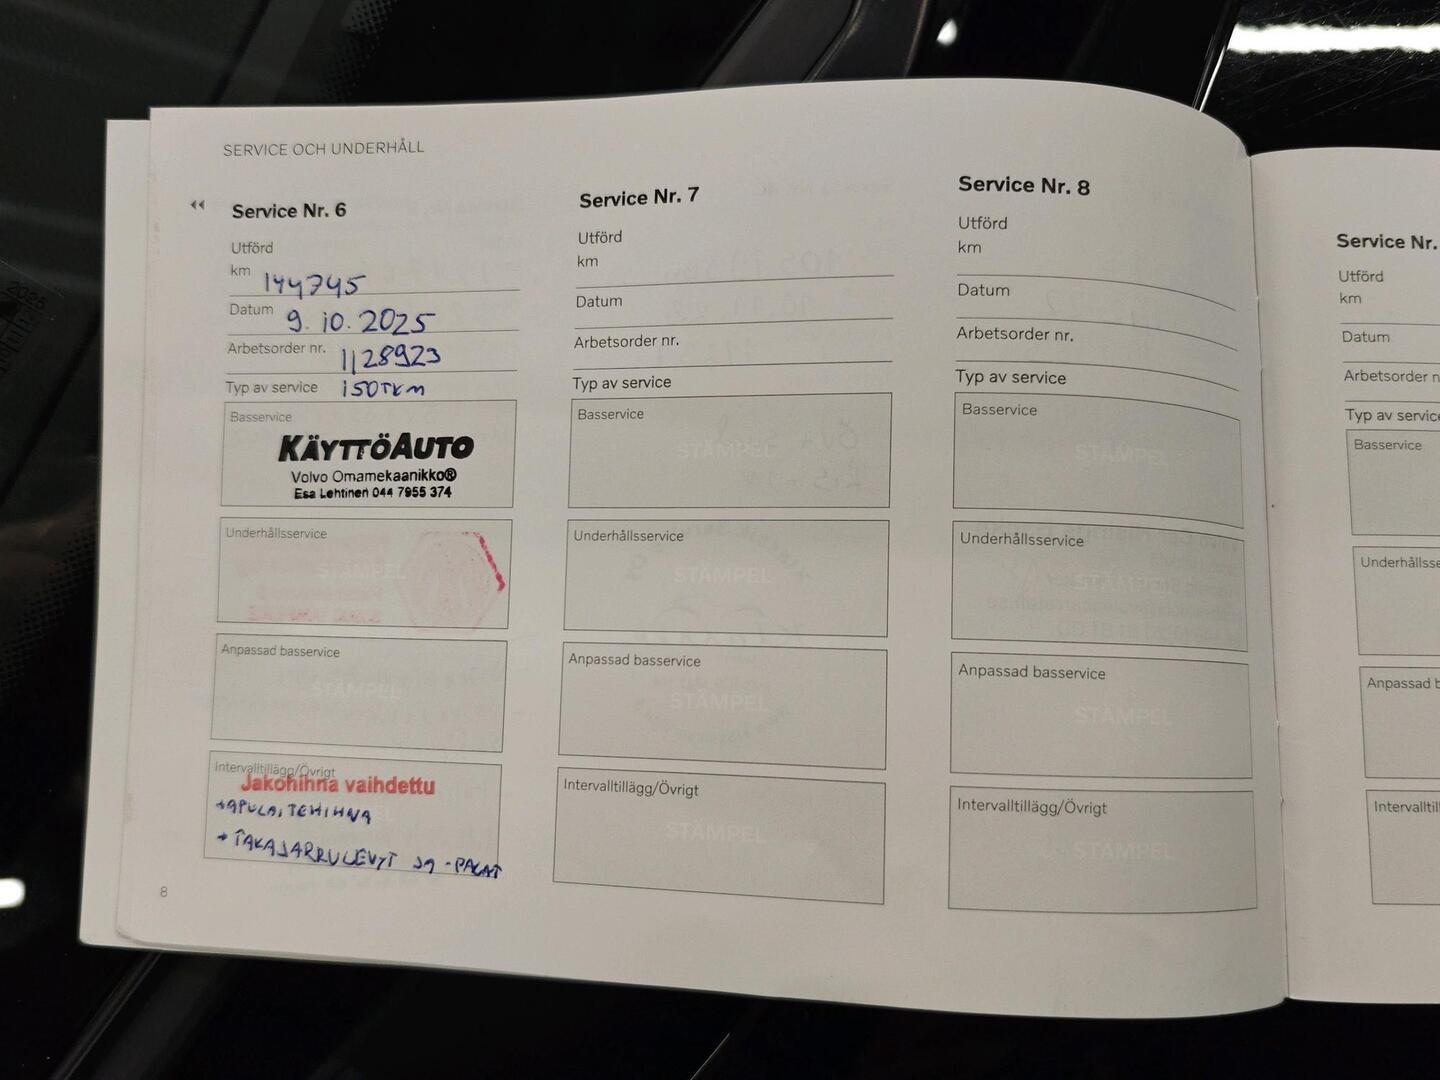 SERVICE OCH UNDERHÅLL
Service Nr. 6
Utförd
km 144745
Datum 9.10.2025
Arbetsorder nr. 1128923
Typ av service 150TKM
Basservice
KÄYTTÖAUTO
Volvo Omamekaanikko®
Esa Lehtinen 044 7955 374
Underhållsservice
STÄMPEL
Anpassad basservice
STÄMPEL
Intervalltillägg/Övrigt
Jakohihna vaihdettu
+APULAITEHIHNA
+TAKAJARRULEVYT JA -PALAT
8
Service Nr. 7
Utförd
km
Datum
Arbetsorder nr.
Typ av service
Basservice
STÄMPEL
Underhållsservice
STÄMPEL
Anpassad basservice
STÄMPEL
Intervalltillägg/Övrigt
STÄMPEL
Service Nr. 8
Utförd
km
Datum
Arbetsorder nr.
Typ av service
Basservice
STÄMPEL
Underhållsservice
STÄMPEL
Anpassad basservice
STÄMPEL
Intervalltillägg/Övrigt
STÄMPEL
Service Nr.
Utförd
km
Datum
Arbetsorder n
Typ av service
Basservice
Underhållsse
Anpassad b
Intervalltil
2025